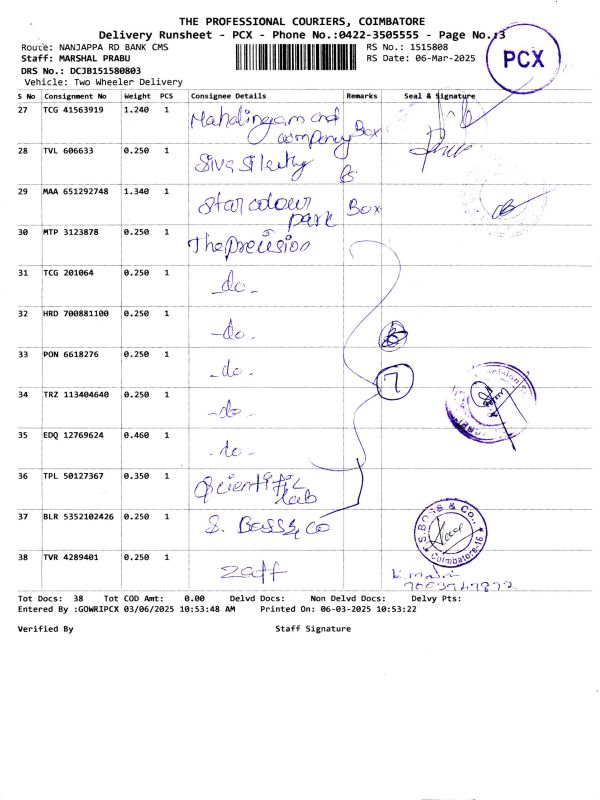 THE PROFESSIONAL COURIERS, COIMBATORE
Delivery Runsheet - PCX - Phone No.:0422-3505555 - Page No.:3
Route: NANJAPPA RD BANK CMS
RS No.: 1515808
Staff: MARSHAL PRABU
RS Date: 06-Mar-2025
DRS No.: DCJB151580803
Vehicle: Two Wheeler Delivery
PCX
S No Consignment No Weight PCS Consignee Details Remarks Seal & Signature
27 TCG 41563919 1.240 1 Mahalingam and company Box
28 TVL 606633 0.250 1
29 MAA 651292748 1.340 1 Star colour park Box
30 MTP 3123878 0.250 1 The precision
31 TCG 201064 0.250 1 -do-
32 HRD 700881100 0.250 1 -do-
33 PON 6618276 0.250 1 -do-
7
34 TRZ 113404640 0.250 1 -do-
35 EDQ 12769624 0.460 1 -do-
36 TPL 50127367 0.350 1 Scientific lab
37 BLR 5352102426 0.250 1 S. Boss & co
S. BOSS & Co. Coimbatore-16
38 TVR 4289401 0.250 1 zaff
Tot Docs: 38 Tot COD Amt: 0.00 Delvd Docs: Non Delvd Docs: Delvy Pts:
Entered By :GOWRIPCX 03/06/2025 10:53:48 AM Printed On: 06-03-2025 10:53:22
Verified By Staff Signature